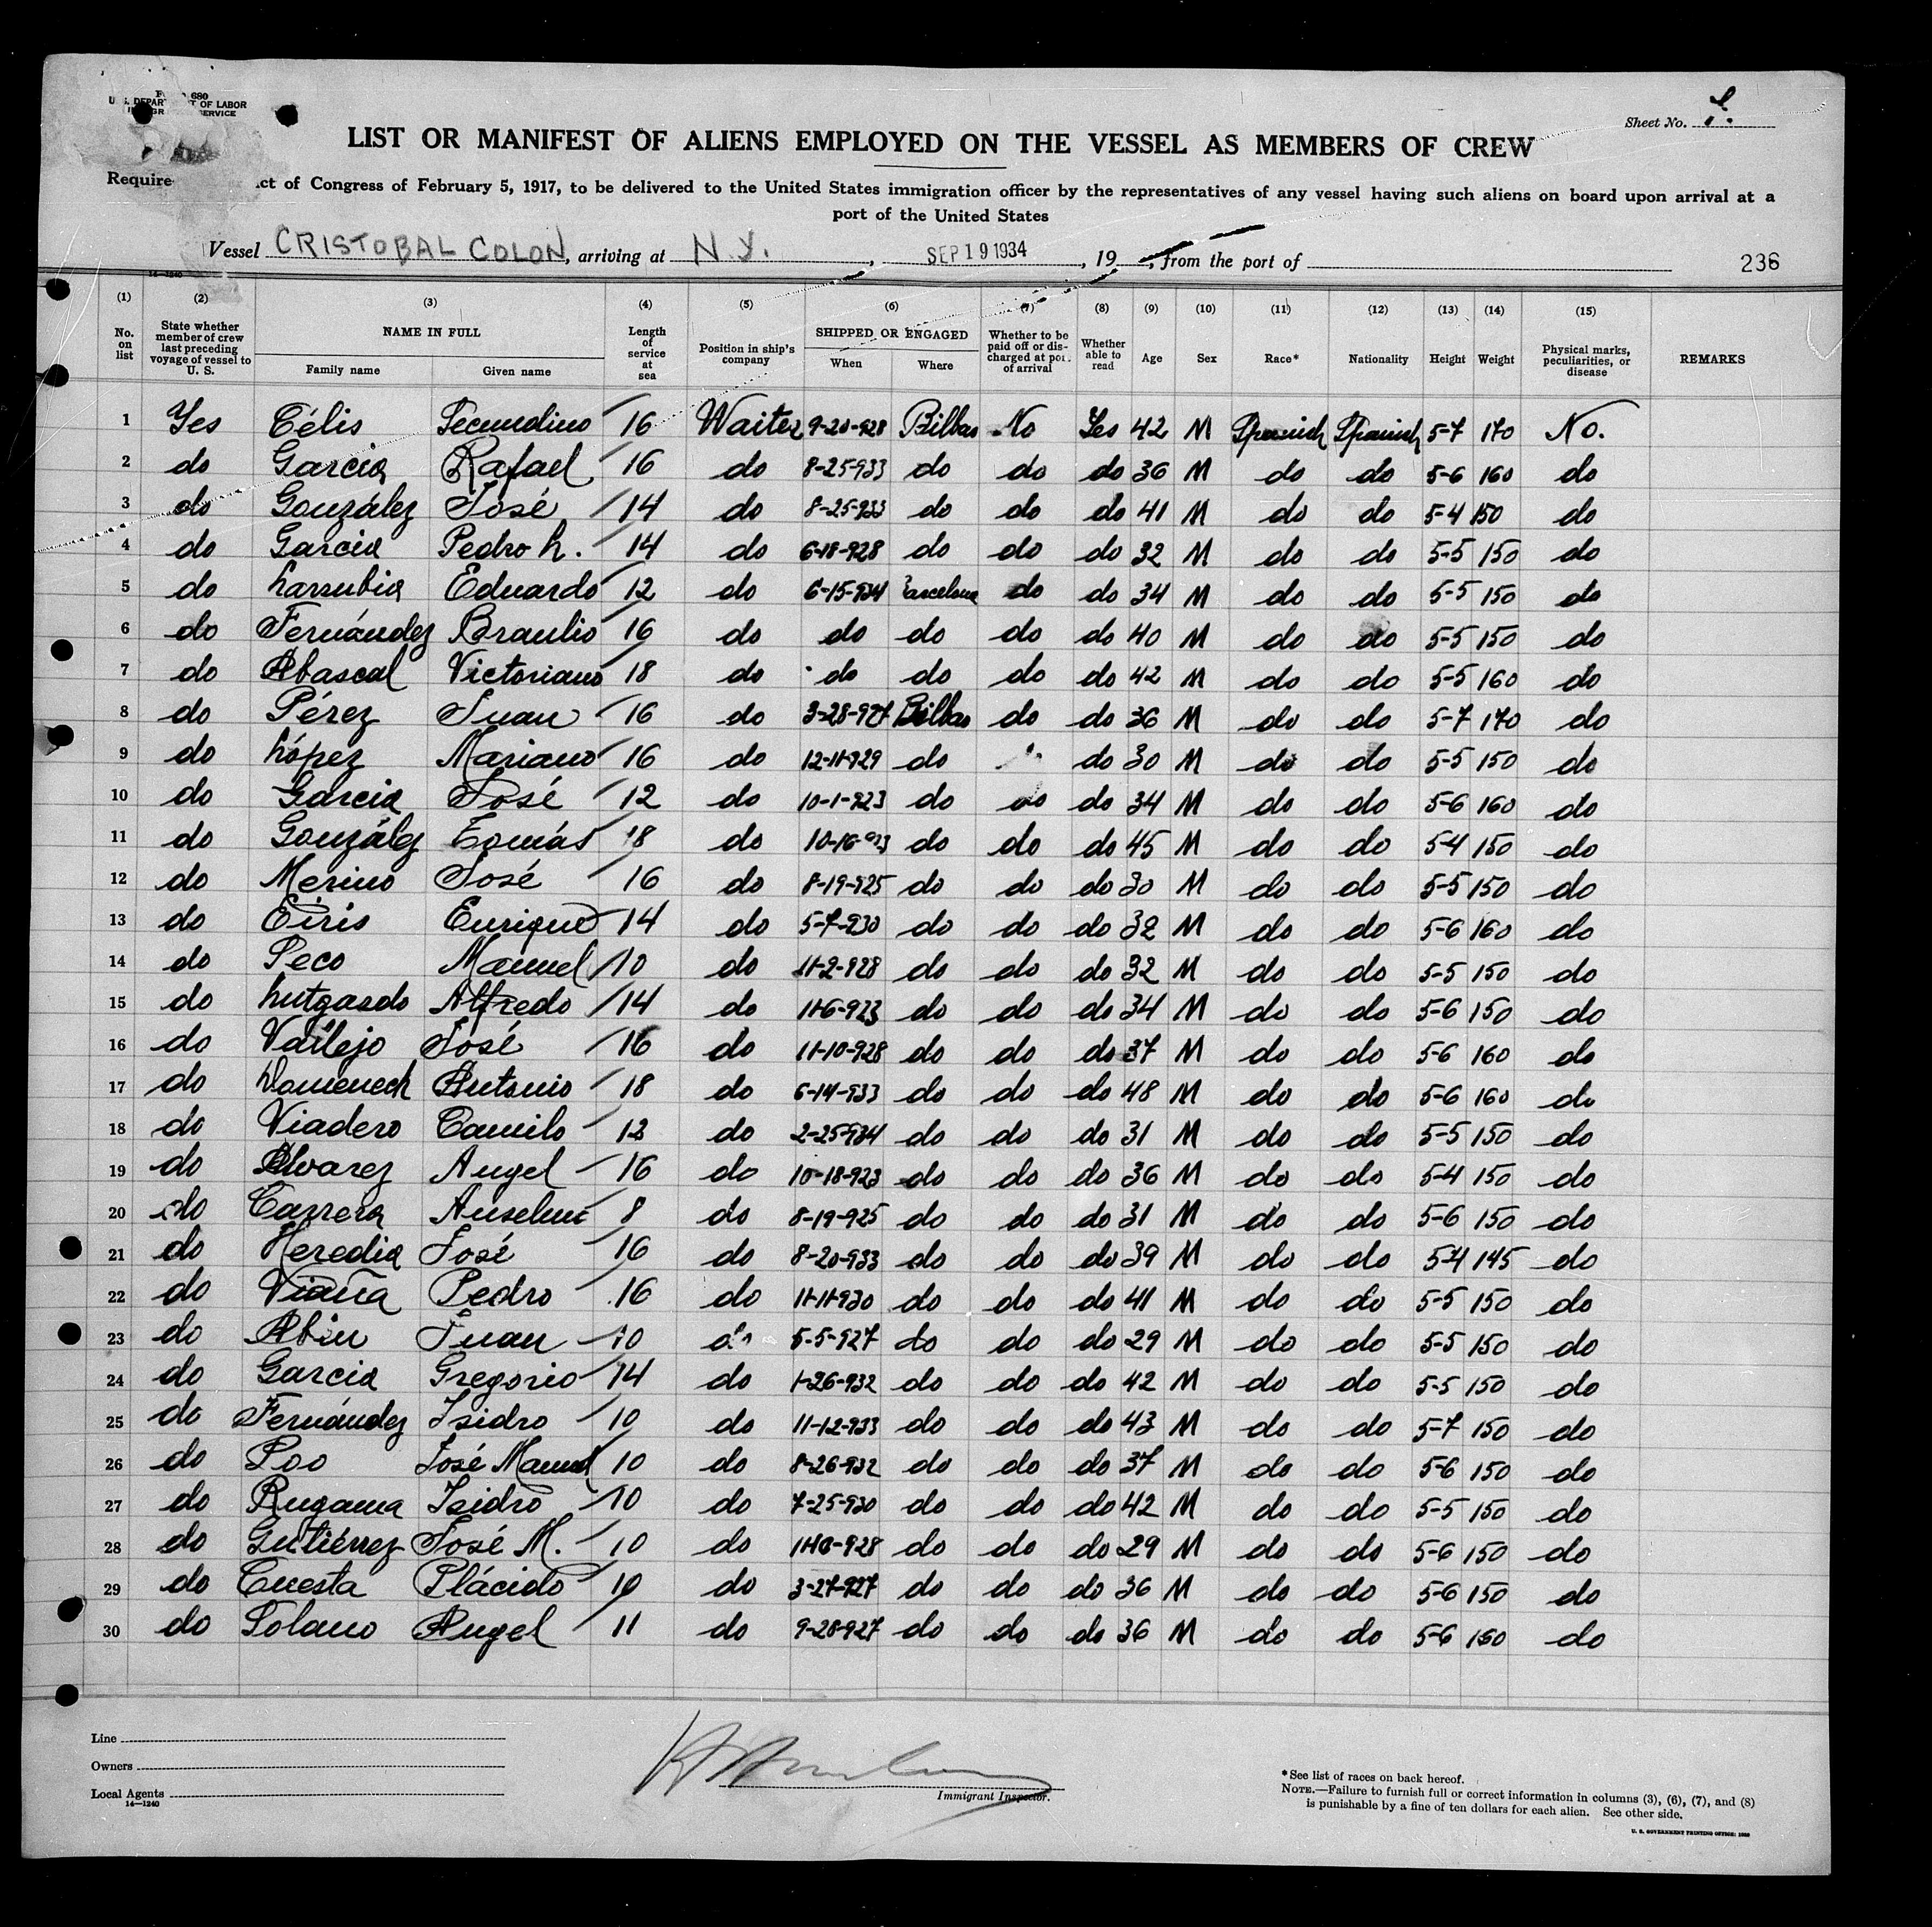 680
U. S. DEPAR OF LABOR
SERVICE
Sheet No.
LIST OR MANIFEST OF ALIENS EMPLOYED ON THE VESSEL AS MEMBERS OF CREW
Require ct of Congress of February 5, 1917, to be delivered to the United States immigration officer by the representatives of any vessel having such aliens on board upon arrival at a
port of the United States
Vessel CRISTOBAL COLON, arriving at N.Y., SEP 19 1934, 19 , from the port of 236
14-1240
(1) (2) (3) (4) (5) (6) (7) (8) (9) (10) (11) (12) (13) (14) (15)
No. on list State whether member of crew last preceding voyage of vessel to U. S. NAME IN FULL Family name Given name Length of service at sea Position in ship's company SHIPPED OR ENGAGED When Where Whether to be paid off or discharged at port of arrival Whether able to read Age Sex Race* Nationality Height Weight Physical marks, peculiarities, or disease REMARKS
1 Yes Célis Secundino 16 Waiter 9-20-928 Bilbao No Yes 42 M Spanish Spanish 5-7 170 No.
2 do Garcia Rafael 16 do 8-25-933 do do do 36 M do do 5-6 160 do
3 do González José 14 do 8-25-933 do do do 41 M do do 5-4 150 do
4 do Garcia Pedro L. 14 do 6-18-928 do do do 32 M do do 5-5 150 do
5 do Larrubia Eduardo 12 do 6-15-934 Barcelona do do 34 M do do 5-5 150 do
6 do Fernández Braulio 16 do do do do do 40 M do do 5-5 150 do
7 do Abascal Victoriano 18 do do do do do 42 M do do 5-5 160 do
8 do Pérez Juan 16 do 3-28-927 Bilbao do do 36 M do do 5-7 170 do
9 do López Mariano 16 do 12-11-929 do do 30 M do do 5-5 150 do
10 do Garcia José 12 do 10-1-923 do do do 34 M do do 5-6 160 do
11 do González Tomás 18 do 10-16-933 do do do 45 M do do 5-4 150 do
12 do Merino José 16 do 8-19-925 do do do 30 M do do 5-5 150 do
13 do Eiris Enrique 14 do 5-7-930 do do do 32 M do do 5-6 160 do
14 do Seco Manuel 10 do 11-2-928 do do do 32 M do do 5-5 150 do
15 do Lutgardo Alfredo 14 do 11-6-923 do do do 34 M do do 5-6 150 do
16 do Vallejo José 16 do 11-10-928 do do do 37 M do do 5-6 160 do
17 do Domenech Antonio 18 do 6-14-933 do do do 48 M do do 5-6 160 do
18 do Viadero Camilo 12 do 2-25-934 do do do 31 M do do 5-5 150 do
19 do Alvarez Angel 16 do 10-18-923 do do do 36 M do do 5-4 150 do
20 do Carrera Anselmo 8 do 8-19-925 do do do 31 M do do 5-6 150 do
21 do Heredia José 16 do 8-20-933 do do do 39 M do do 5-4 145 do
22 do Viaña Pedro 16 do 11-11-930 do do do 41 M do do 5-5 150 do
23 do Abin Juan 10 do 5-5-927 do do do 29 M do do 5-5 150 do
24 do Garcia Gregorio 14 do 1-26-932 do do do 42 M do do 5-5 150 do
25 do Fernández Isidro 10 do 11-12-933 do do do 43 M do do 5-7 150 do
26 do Poo José Manuel 10 do 8-26-932 do do do 37 M do do 5-6 150 do
27 do Rugama Isidro 10 do 7-25-930 do do do 42 M do do 5-5 150 do
28 do Gutiérrez José M. 10 do 11-10-928 do do do 29 M do do 5-6 150 do
29 do Cuesta Plácido 10 do 3-27-927 do do do 36 M do do 5-6 150 do
30 do Solano Angel 11 do 9-28-927 do do do 36 M do do 5-6 160 do
Line
Owners
Local Agents
14-1240
Immigrant Inspector.
*See list of races on back hereof.
NOTE.—Failure to furnish full or correct information in columns (3), (6), (7), and (8)
is punishable by a fine of ten dollars for each alien. See other side.
U. S. GOVERNMENT PRINTING OFFICE: